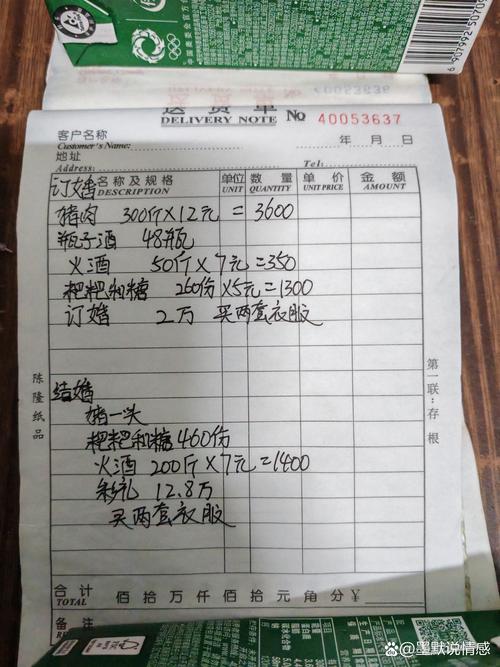 中国奥委会官方
6 907992 50709
40053636
送货单
DELIVERY NOTE № 40053637
客户名称
Customer's Name:
年 月 日
地址
Address:
Tel:
订婚 名称及规格 单位 数量 单价 金额
DESCRIPTION UNIT QUANTITY UNIT PRICE AMOUNT
猪肉 300斤×12元=3600
瓶子酒 48瓶
火酒 50斤×7元=350
粑粑和糖 260份×5元=1300
订婚 2万 买两套衣服
结婚
猪一头
粑粑和糖 460份
火酒 200斤×7元=1400
彩礼 12.8万
买两套衣服
陈隆纸品
第一联:存根
合计 佰拾万仟佰拾元角分 ¥
TOTAL
备注
@墨默说情感